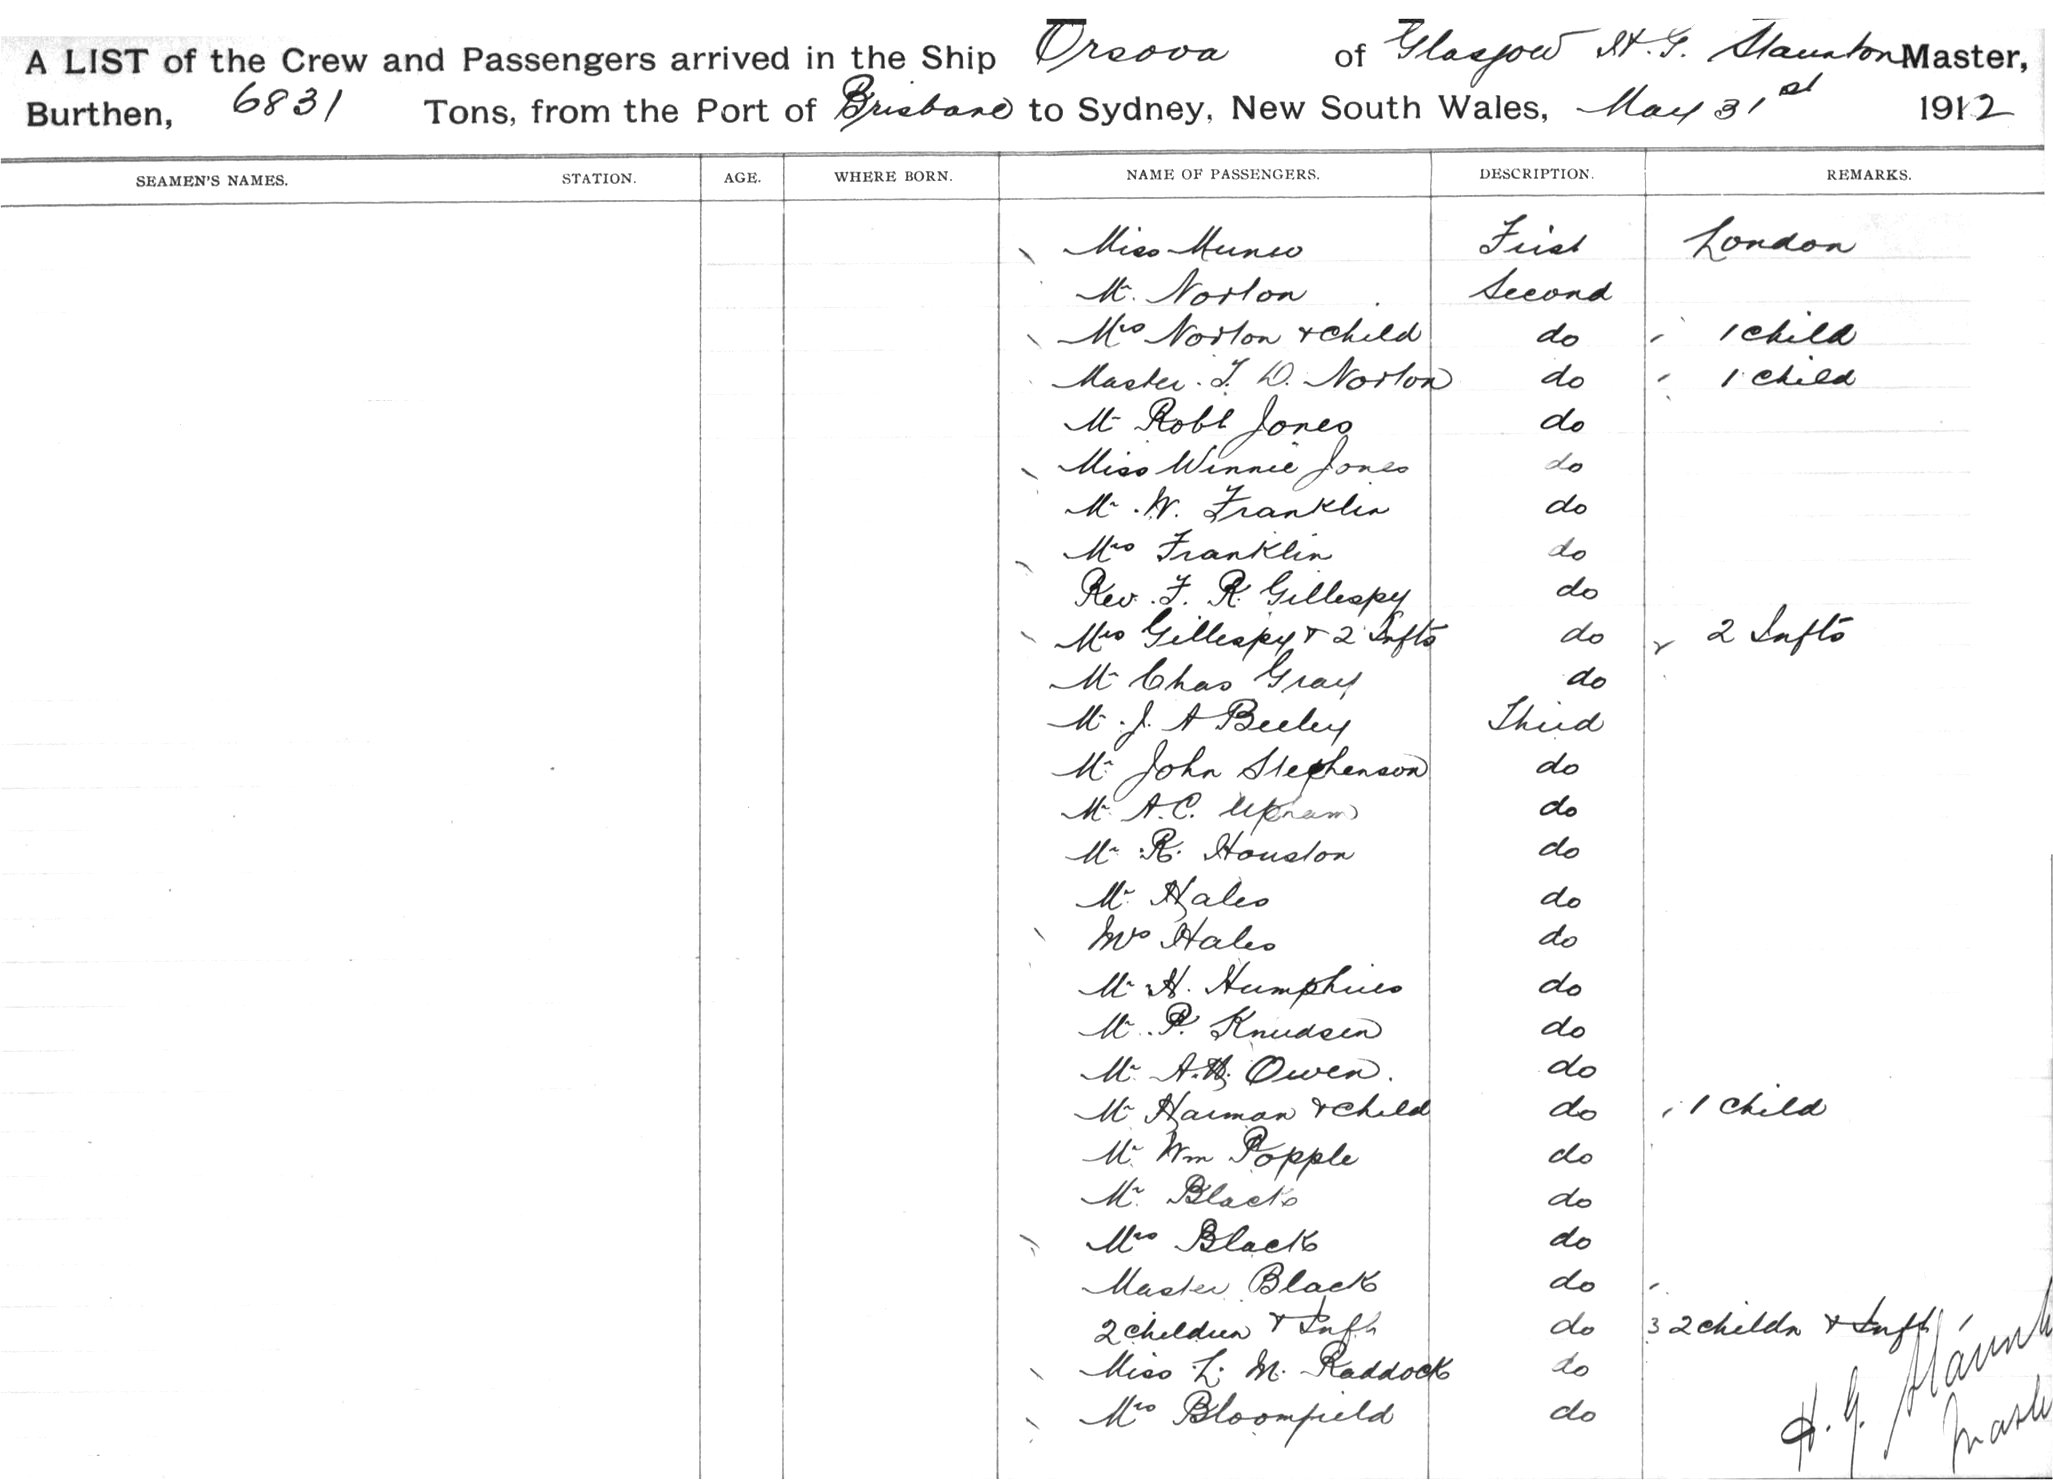 A LIST of the Crew and Passengers arrived in the Ship Orsova of Glasgow H. G. Staunton Master,
Burthen, 6831 Tons, from the Port of Brisbane to Sydney, New South Wales, May 31st 1912
SEAMEN'S NAMES. STATION. AGE. WHERE BORN. NAME OF PASSENGERS. DESCRIPTION. REMARKS.
Miss Munro First London
Mr. Norton Second
Mrs Norton & child do 1 child
Master. T. D. Norton do 1 child
Mr Robt Jones do
Miss Winnie Jones do
Mr. W. Franklin do
Mrs Franklin do
Rev. F. R. Gillespy do
Mrs Gillespy & 2 Infts do 2 Infts
Mr Chas Gray do
Mr. J. A Beeley Third
Mr John Stephenson do
Mr A. C. Upham do
Mr R. Houston do
Mr Hales do
Mrs Hales do
Mr H. Humphries do
Mr. P. Knudsen do
Mr A. H. Owen. do
Mr Harman & child do 1 child
Mr Wm Popple do
Mr. Black do
Mrs Black do
Master Black do
2 children & Inft do 3 2 childn & Inft
Miss L. M. Raddock do
Mrs Bloomfield do
H. G. Staunt
Maste